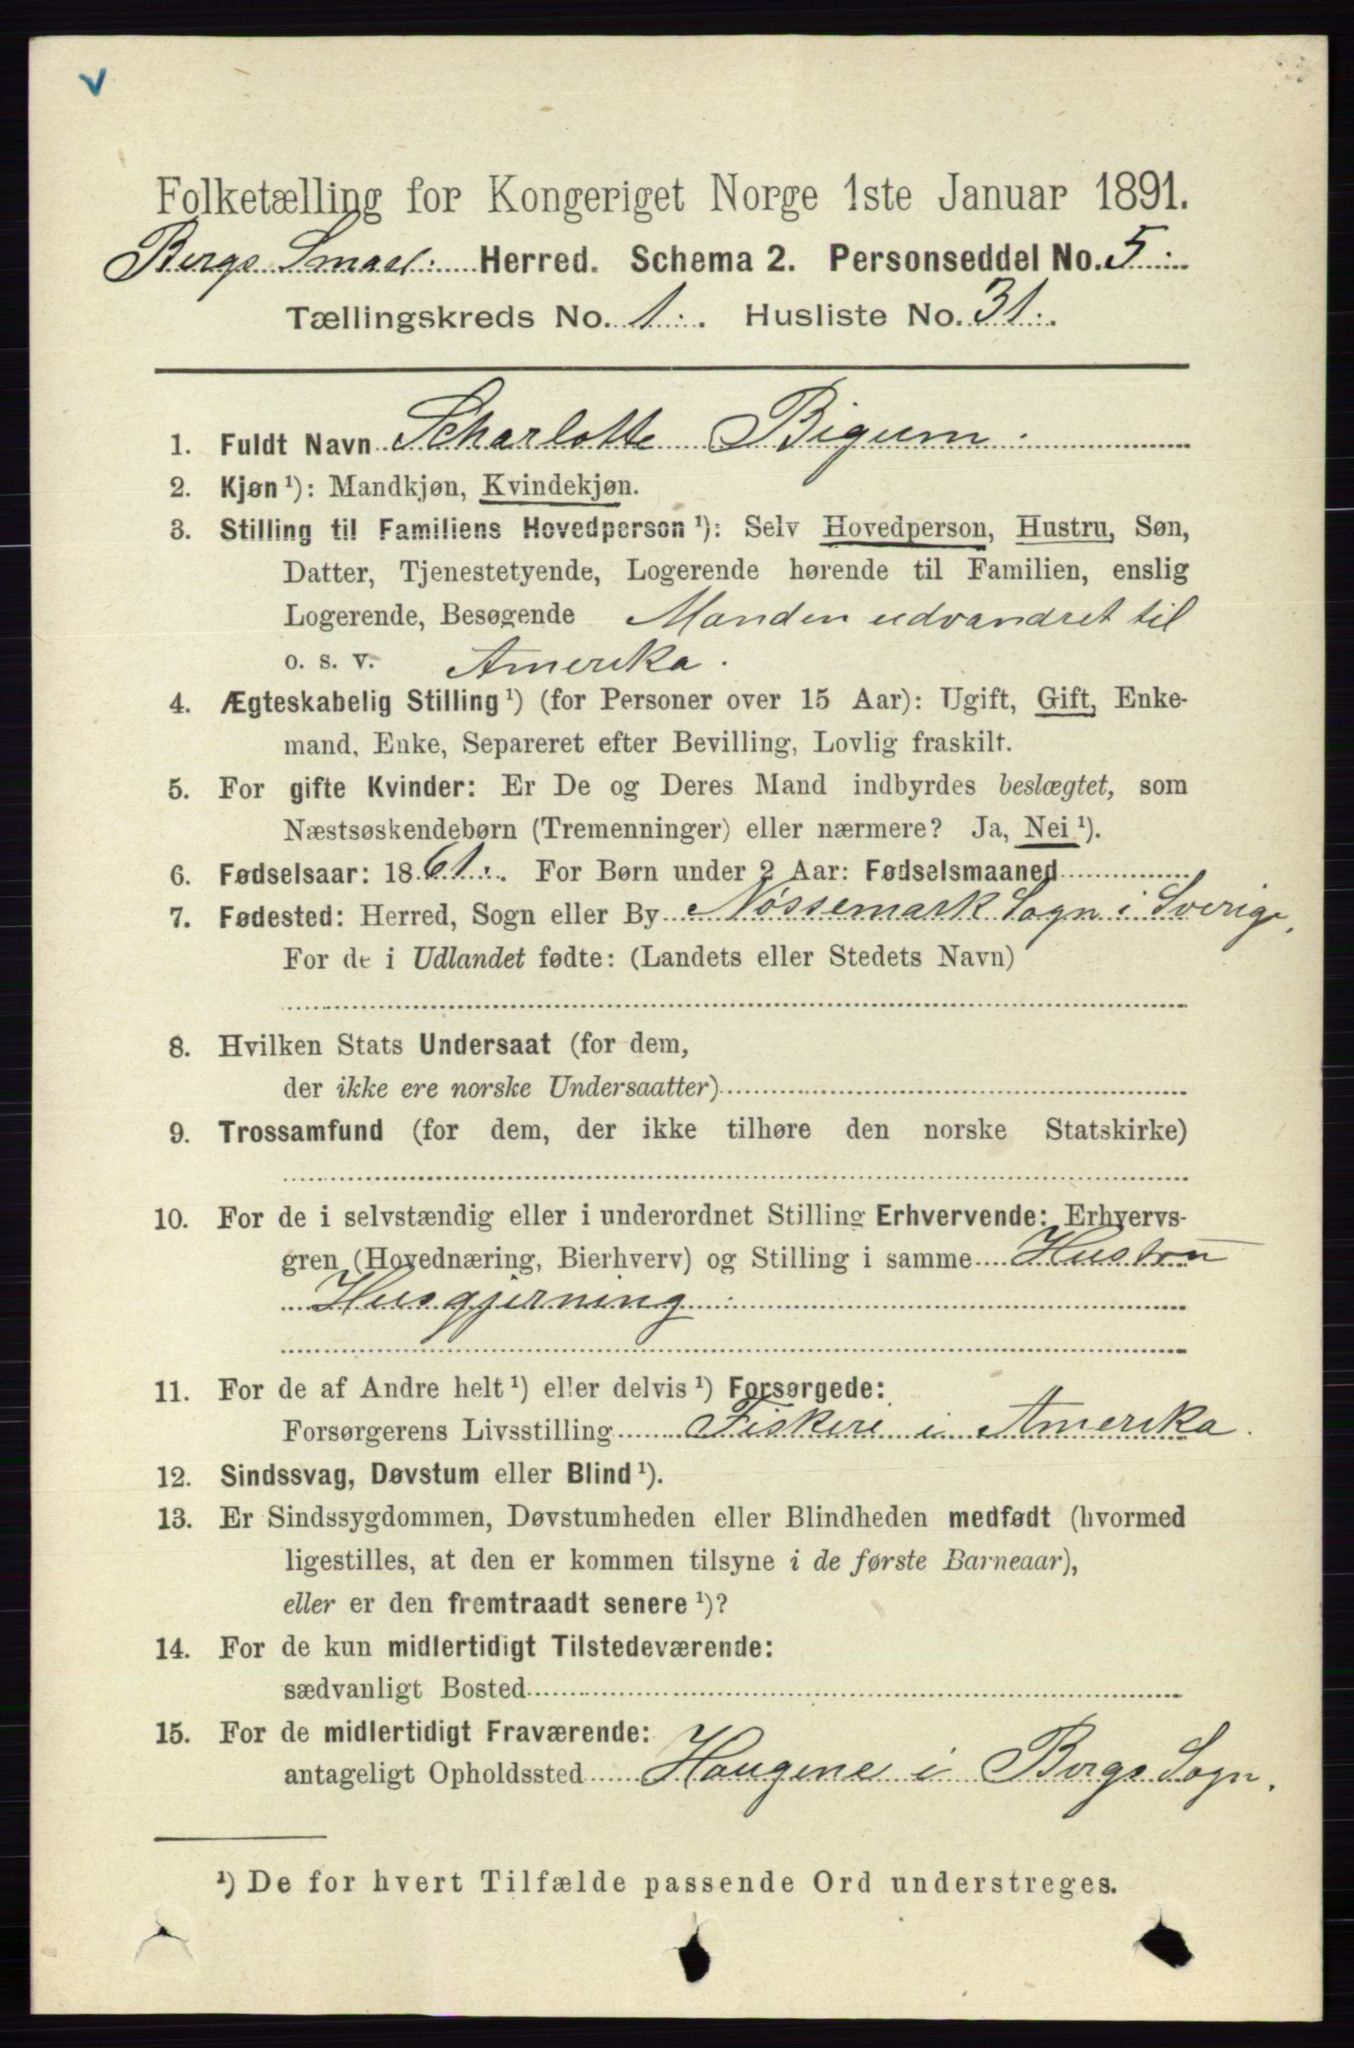 Folketælling for Kongeriget Norge 1ste Januar 1891.
Bergs Smaal: Herred. Schema 2. Personseddel No. 5.
Tællingskreds No. 1. Husliste No. 31.
1. Fuldt Navn Scharlotte Bigum.
2. Kjøn ¹): Mandkjøn, Kvindekjøn.
3. Stilling til Familiens Hovedperson ¹): Selv Hovedperson, Hustru, Søn,
Datter, Tjenestetyende, Logerende hørende til Familien, enslig
Logerende, Besøgende Manden udvandret til
o. s. v. Amerika.
4. Ægteskabelig Stilling ¹) (for Personer over 15 Aar): Ugift, Gift, Enke-
mand, Enke, Separeret efter Bevilling, Lovlig fraskilt.
5. For gifte Kvinder: Er De og Deres Mand indbyrdes beslægtet, som
Næstsøskendebørn (Tremenninger) eller nærmere? Ja, Nei ¹).
6. Fødselsaar: 1861. For Børn under 2 Aar: Fødselsmaaned
7. Fødested: Herred, Sogn eller By Nössemark Sogn i Sverige.
For de i Udlandet fødte: (Landets eller Stedets Navn)
8. Hvilken Stats Undersaat (for dem,
der ikke ere norske Undersaatter)
9. Trossamfund (for dem, der ikke tilhøre den norske Statskirke)
10. For de i selvstændig eller i underordnet Stilling Erhvervende: Erhvervs-
gren (Hovednæring, Bierhverv) og Stilling i samme Hustru
Husgjerning
11. For de af Andre helt ¹) eller delvis ¹) Forsørgede:
Forsørgerens Livsstilling Fiskeri i Amerika.
12. Sindssvag, Døvstum eller Blind ¹).
13. Er Sindssygdommen, Døvstumheden eller Blindheden medfødt (hvormed
ligestilles, at den er kommen tilsyne i de første Barneaar),
eller er den fremtraadt senere ¹)?
14. For de kun midlertidigt Tilstedeværende:
sædvanligt Bosted
15. For de midlertidigt Fraværende:
antageligt Opholdssted Haugene i Bergs Sogn.
¹) De for hvert Tilfælde passende Ord understreges.